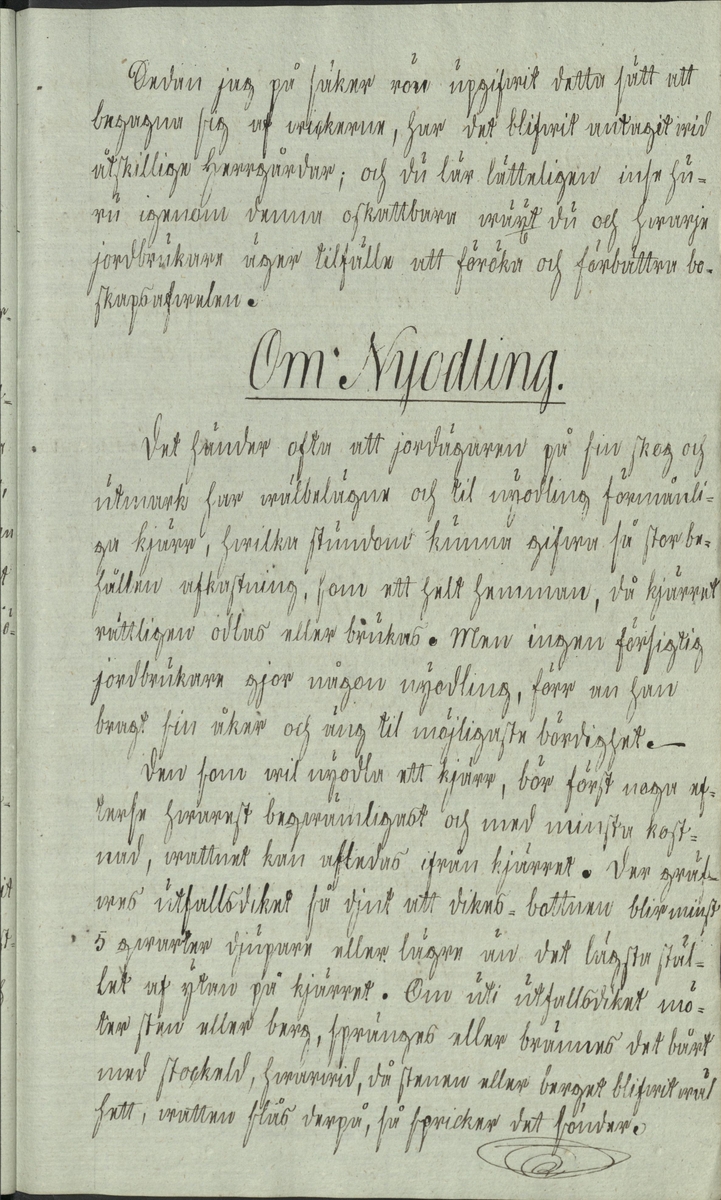 Sedan jag på säker rön upgifwit detta sätt att
begagna sig af wickerne, har det blifwit antagit wid
åtskillige Herrgårdar; och du lär lätteligen inse hu-
ru igenom denna oskattbara wäxt du och hwarje
jordbrukare äger tilfälle att föröka och förbättra bo-
skapsafwelen.
Om Nyodling.
Det händer ofta att jordägaren på sin skog och
utmark har wälbelägne och til nyodling förmånli-
ga kjärr, hwilka stundom kunna gifwa så stor be-
hållen afkastning, som ett helt hemman, då kjärret
rättligen odlas eller brukas. Men ingen försigtig
jordbrukare gjör någon nyodling, förr än han
bragt sin åker och äng til möjligaste bördighet.
Den som wil nyodla ett kjärr, bör först noga ef-
terse hwarest beqwämligast och med minsta kost-
nad, wattnet kan afledas ifrån kjärret. Der gräf-
wes utfallsdiket så djut att dikes-bottnen blir minst
5 qwarter djupare eller lägre än det lägsta stäl-
let af ytan på kjärret. Om uti utfallsdiket mö-
ter sten eller berg, spränges eller brännes det bårt
med stockeld, hwarwid, då stenen eller berget blifwit wäl
hett, watten slås derpå, så spricker det sönder.